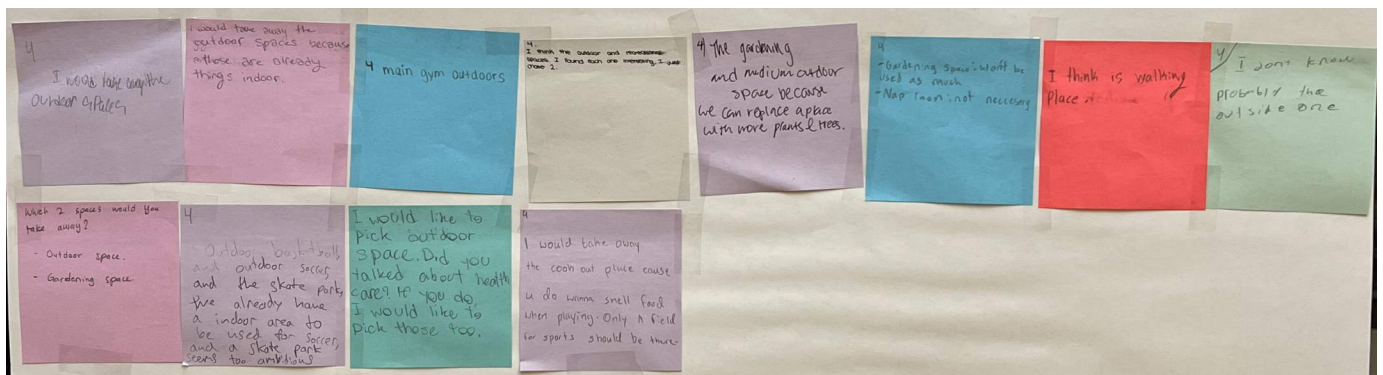 4
I would take away the
outdoor spaces,
I would take away the
outdoor spaces because
those are already
things indoor.
4 main gym outdoors
4.
I think the outdoor and
spaces. I found each one interesting, I just
chose 2.
4) The gardening
and medium outdoor
space because
we can replace a place
with more plants & trees.
4
- Gardening space: Won't be
used as much
- Nap room: not neccesary
I think is walking
Place
4/ I don't know
probably the
outside one
Which 2 spaces would you
take away?
- Outdoor space.
- Gardening space
4
Outdoor basketball,
and outdoor soccer,
and the skate park,
we already have
a indoor area to
be used for soccer,
and a skate park
seems too ambitious
I would like to
pick outdoor
space. Did you
talked about health
care? If you do,
I would like to
pick those too.
4
I would take away
the cook out place cause
u do wanna smell food
when playing. Only A field
for sports should be there